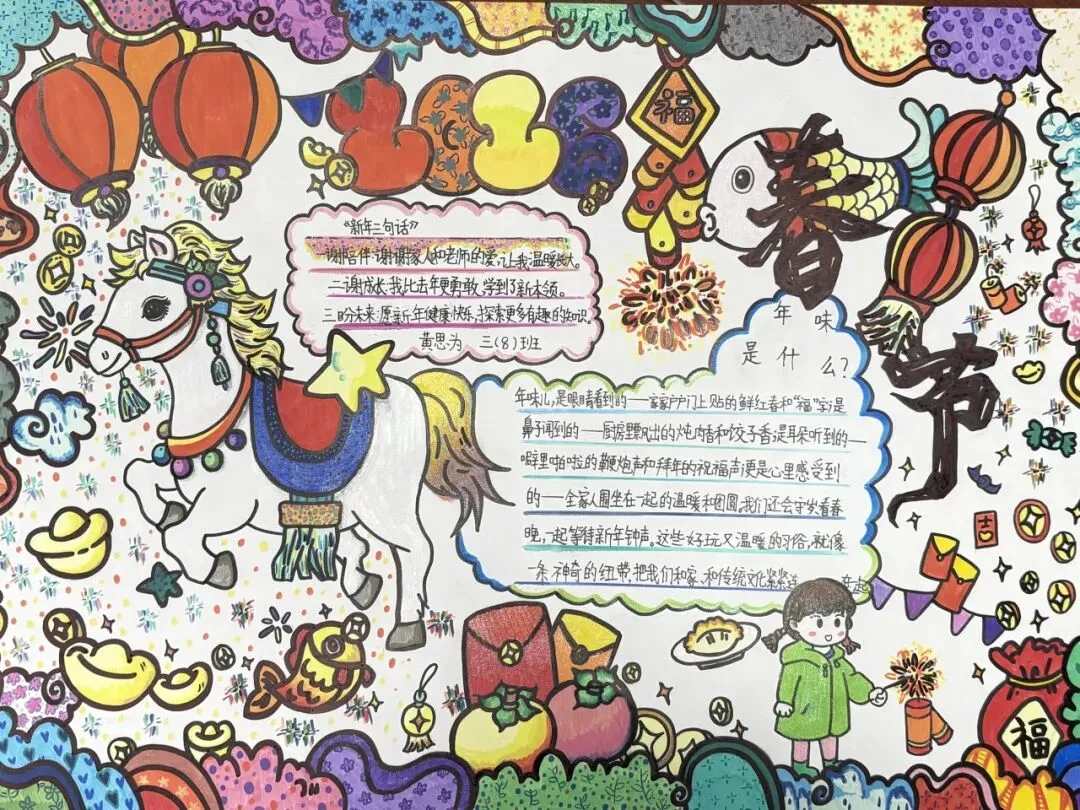 2026
福
春节
"新年三句话"
一谢陪伴:谢谢家人和老师的爱,让我温暖长大。
二谢成长:我比去年更勇敢,学到了新本领。
三盼未来:愿新年健康快乐,探索更多有趣的知识。
黄思为 三(8)班
年味
是什么?
年味儿,是眼睛看到的——家家户户门上贴的鲜红春和"福"字;是
鼻子闻到的——厨房里飘出的炖肉香和饺子香;是耳朵听到的——
噼里啪啦的鞭炮声和拜年的祝福声;更是心里感受到
的——全家人围坐在一起的温暖和团圆。我们还会守岁看春
晚,一起等待新年钟声。这些好玩又温暖的习俗,就像
一条神奇的纽带,把我们和家、和传统文化紧紧连 在一起
吉
福